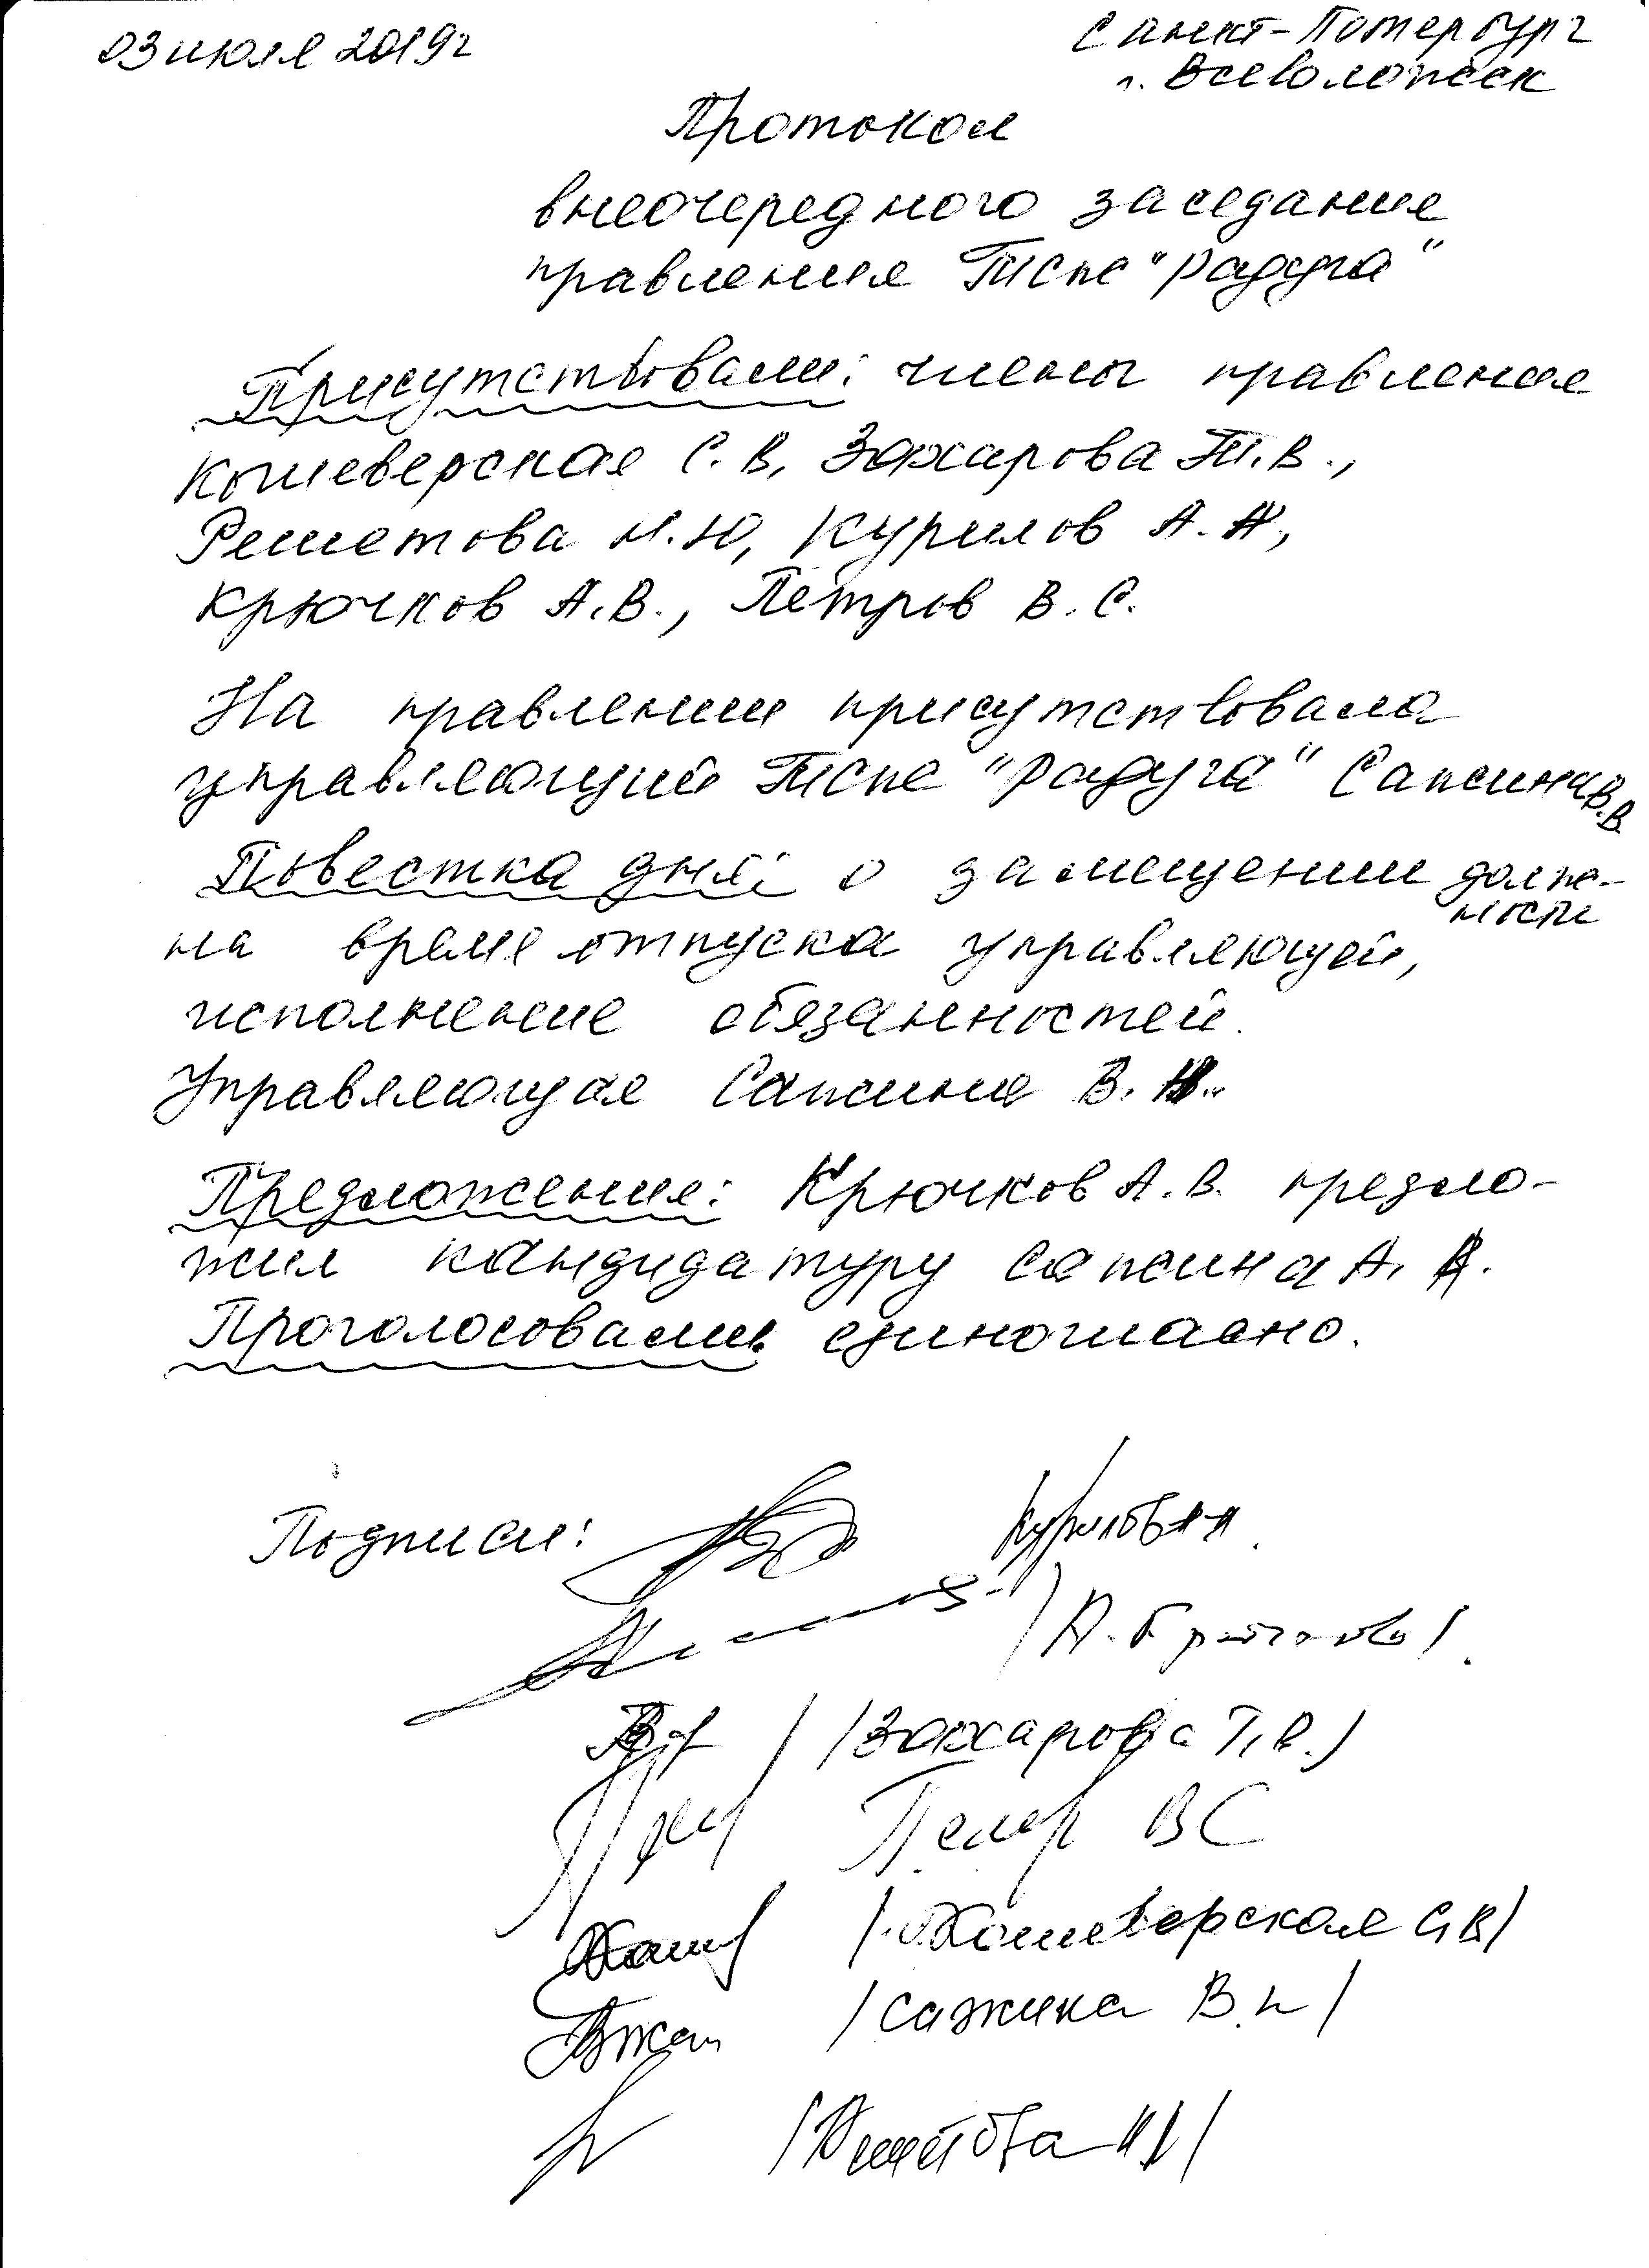 03 июля 2019г
Санкт-Петербург
г. Всеволожск
Протокол
внеочередного заседания
правления Тспс "Радуга"
Присутствовали: члены правления
Кошеверская С.В, Захарова Т.В.,
Решетова И.Ю, Курилов А.А,
Крючков А.В., Петров В.С.
На правлении присутствовала
управляющий Тспс "Радуга" Сажина В.В
Повестка дня: о замещении долж-
ности
на время отпуска управляющей,
исполнение обязанностей.
Управляющая Сажина В.Н.
Предложения: Крючков А.В. предло-
жил кандидатуру Сажина А.А.
Проголосовали единогласно.
Подписи:
Курилов А А.
/Захарова Т.В./
ВС
/Кошеверская С.В/
/Сажина В.Н/
/Решетова